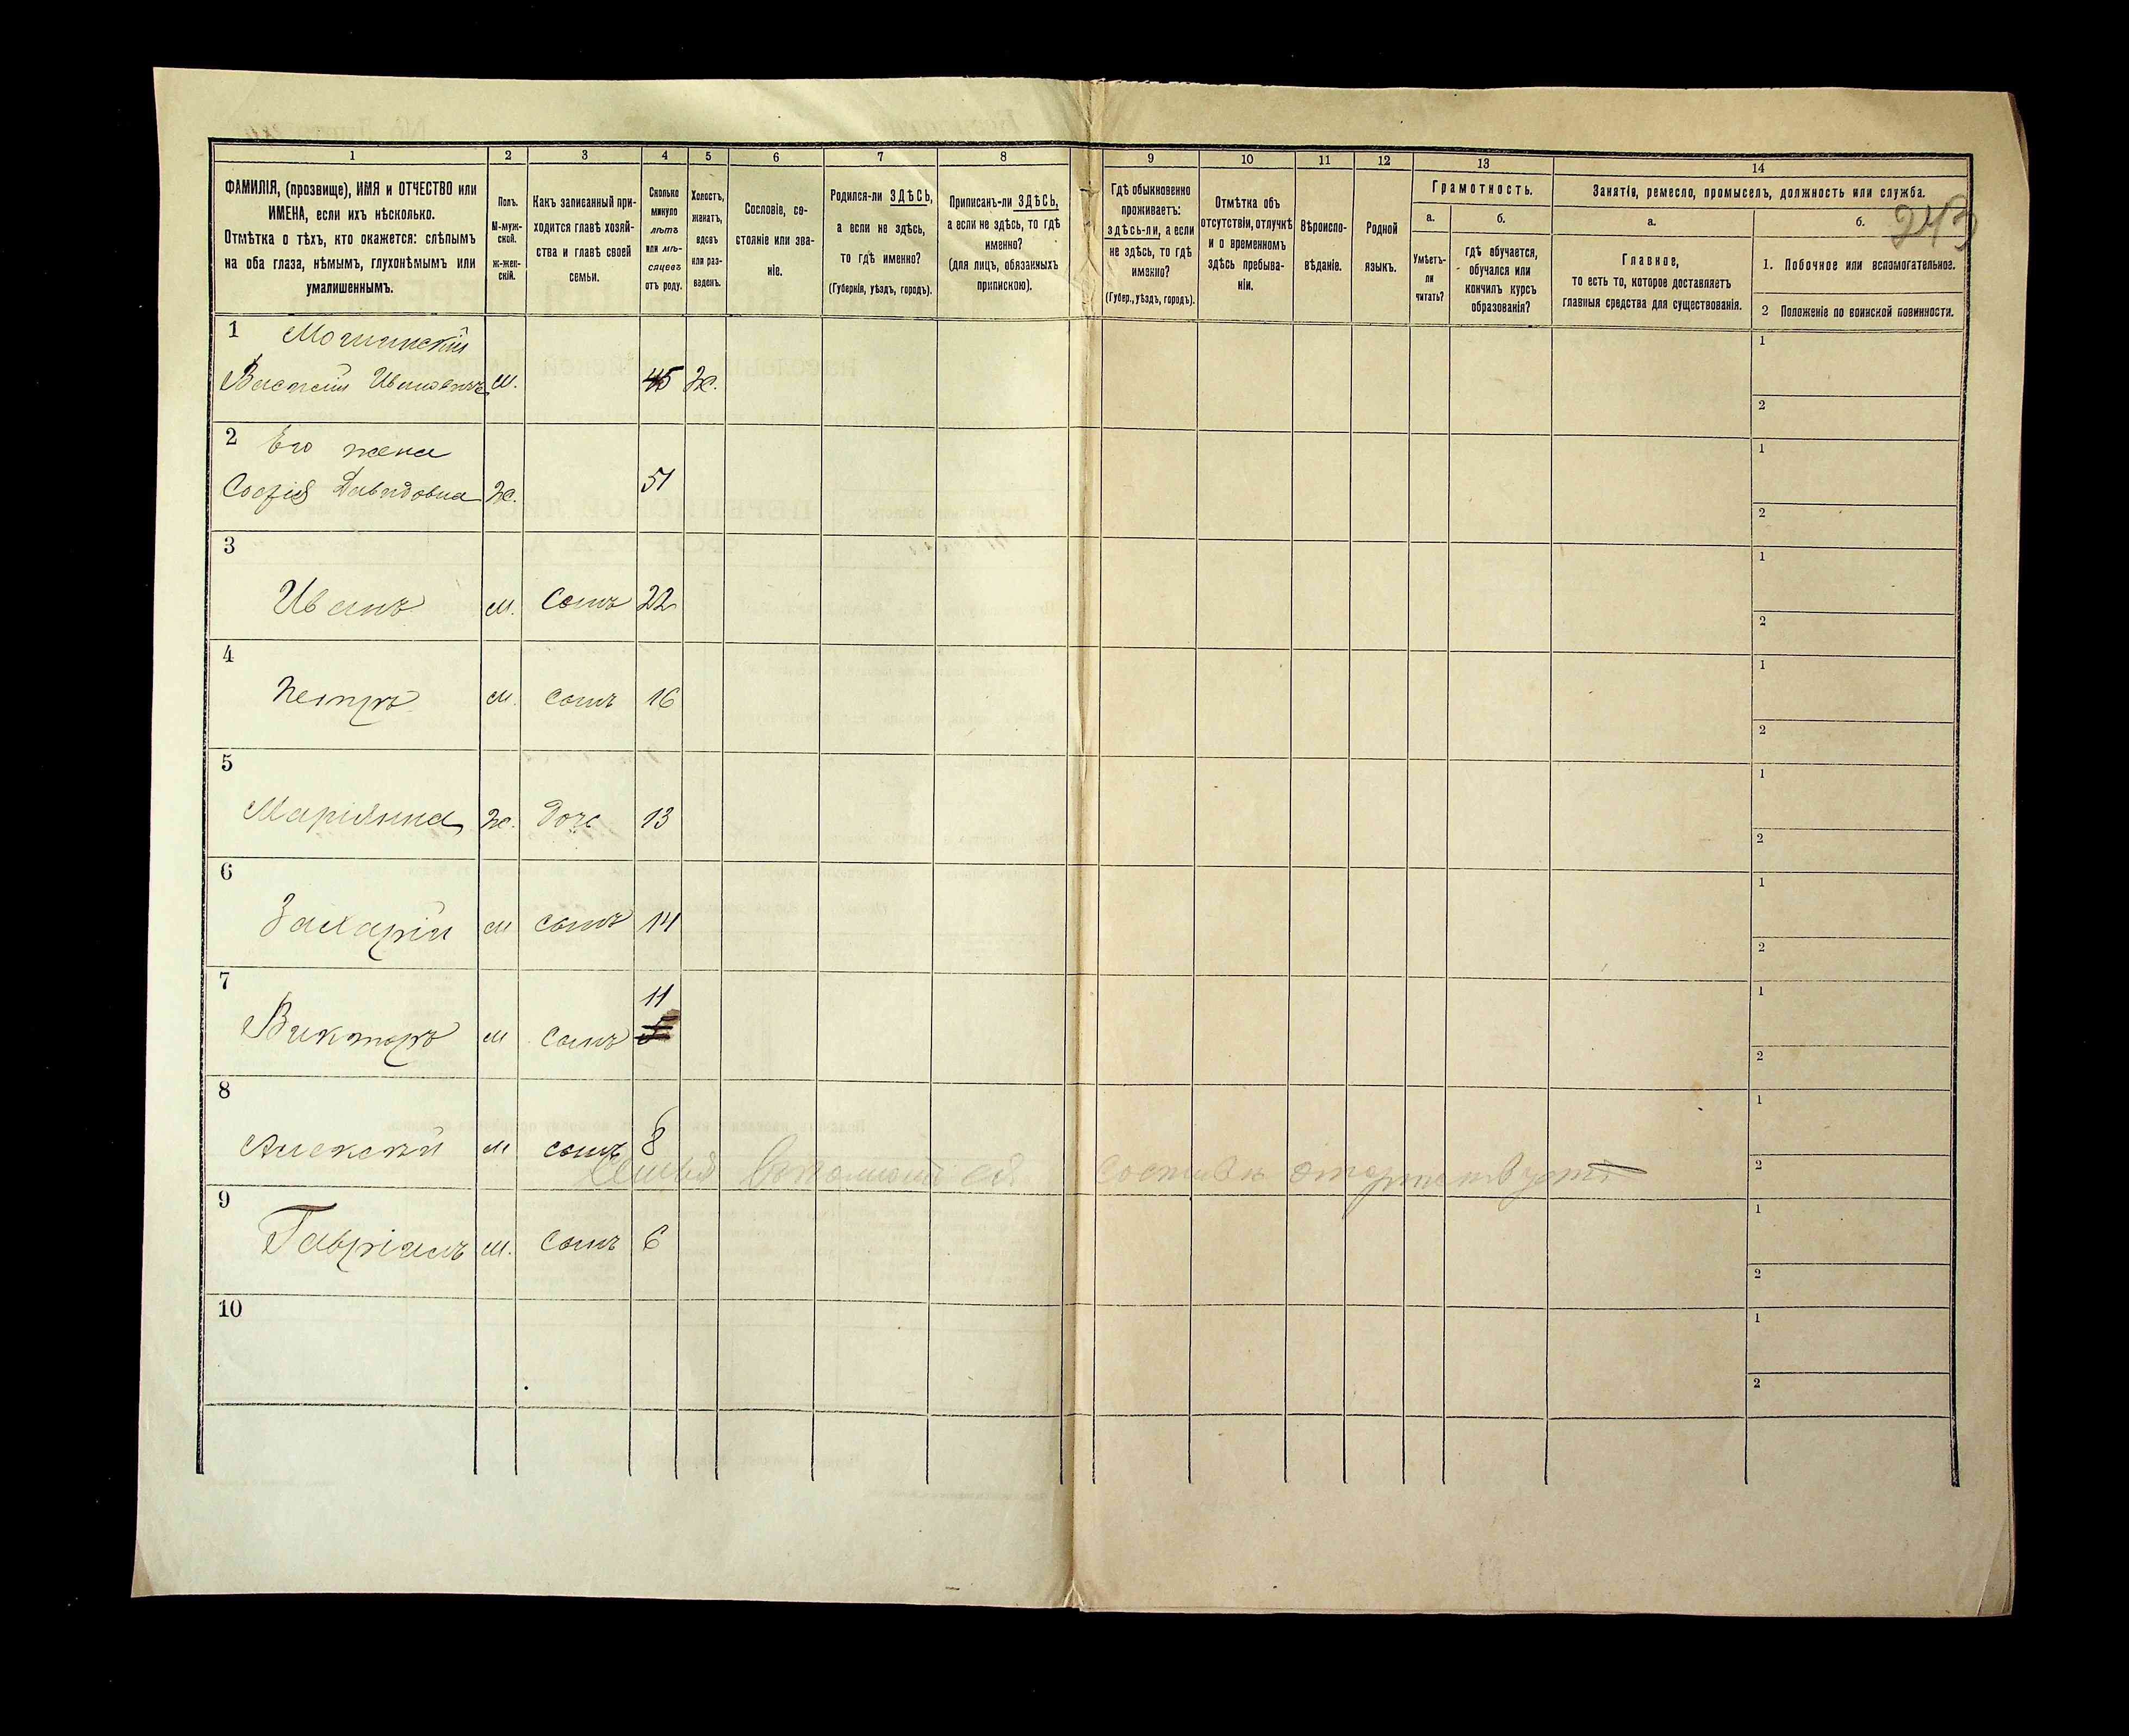 243
1 2 3 4 5 6 7 8 9 10 11 12 13 14
ФАМИЛІЯ, (прозвище), ИМЯ и ОТЧЕСТВО или
ИМЕНА, если ихъ нѣсколько.
Отмѣтка о тѣхъ, кто окажется: слѣпымъ
на оба глаза, нѣмымъ, глухонѣмымъ или
умалишеннымъ.
Полъ.
М-муж-
ской.
Ж-жен-
скій.
Какъ записанный при-
ходится главѣ хозяй-
ства и главѣ своей
семьи.
Сколько
минуло
лѣтъ
или мѣ-
сяцевъ
отъ роду.
Холостъ,
женатъ,
вдовъ
или раз-
веденъ.
Сословіе, со-
стояніе или зва-
ніе.
Родился-ли ЗДѢСЬ,
а если не здѣсь,
то гдѣ именно?
(Губернія, уѣздъ, городъ).
Приписанъ-ли ЗДѢСЬ,
а если не здѣсь, то гдѣ
именно?
(для лицъ, обязанныхъ
припискою).
Гдѣ обыкновенно
проживаетъ:
здѣсь-ли, а если
не здѣсь, то гдѣ
именно?
(Губер., уѣздъ, городъ).
Отмѣтка объ
отсутствіи, отлучкѣ
и о временномъ
здѣсь пребыва-
ніи.
Вѣроиспо-
вѣданіе.
Родной
языкъ.
Грамотность.
а.
Умѣетъ-
ли
читать?
б.
гдѣ обучается,
обучался или
кончилъ курсъ
образованія?
Занятія, ремесло, промыселъ, должность или служба.
а.
Главное,
то есть то, которое доставляетъ
главныя средства для существованія.
б.
1. Побочное или вспомогательное.
2 Положеніе по воинской повинности.
1
Василій Ивановъ м. 45 Ж.
1
2
2 Его жена
Софія Давидовна Ж. 51
1
2
3
Иванъ м. Сынъ 22
1
2
4
Петръ м. сынъ 16
1
2
5
Маріянна Ж. Дочь 13
1
2
6
Захарій м сынъ 14
1
2
7
11
Викторъ м Сынъ
1
2
8
Алексѣй м сынъ 8
1
2
Семья составъ отсутствуетъ
9
Гавріилъ м. Сынъ 6
1
2
10
1
2